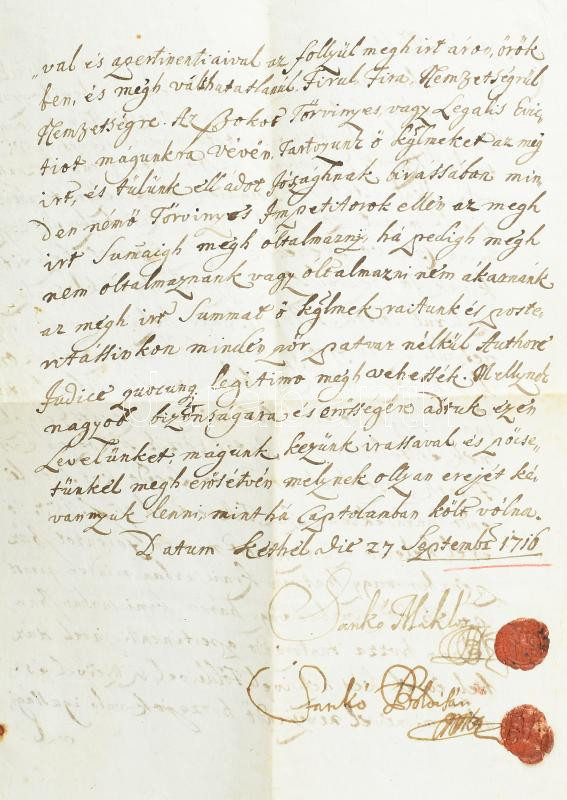 „val és apertinentiaival az follyúl megh irt áron, örök
ben, és megh válthatatlanúl, Firul Fira, Nemzetségrúl
Nemzetségre. Az Szokot Törvinyes, vagy Legalis Evic,
tiot magunkra vévén, Tartozunk ő kglmeket az meg
irt, és tülünk ell adot Jószághnak birassában min,
den némö Törvinyes Impetitorok ellen az megh
irt Sumaigh megh óltalmazni, há pedigh megh
nem óltalmaznánk vagy óltalmazni ném akarnánk
az mégh irt Summat ő kglmek raitunk és poste,
ritássinkon minden pör patvar nélkúl Authore
Judice quocunq legitimo megh vehessék. Mellynek
nagyob bizonságára és erősségére adtuk ezen
Levelünket, magunk kezünk irassával és pöcse,
tünkel megh erősétvén melynek ollyan erejét ké,
vannyuk lenni, mint há Captolanban költ vólna.
Datum Késthél die 27 Septembr 1716
Sankó Miklos
Sankó Boldisár